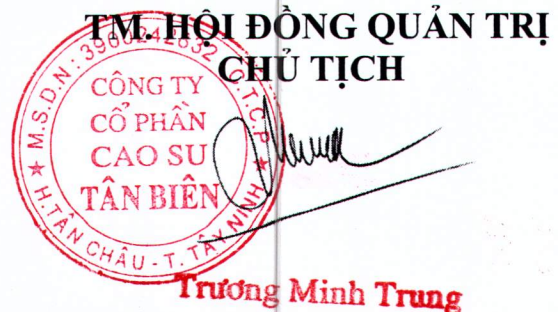 TM. HỘI ĐỒNG QUẢN TRỊ
CHỦ TỊCH
M.S.D.N: 3900242832 C.T.C.P
CÔNG TY
CỔ PHẦN
CAO SU
TÂN BIÊN
H.TÂN CHÂU - T. TÂY NINH
Trương Minh Trung